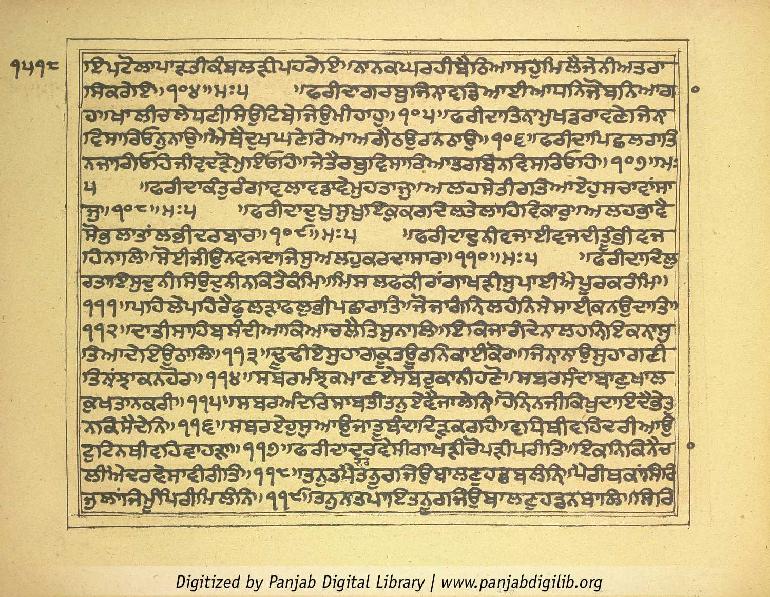 ੧੫੧੮
ਾਇਪਟੋਲਾਪਾੜਤੀਕੰਬਲੜੀਪਹਰੇਇ॥ਨਾਨਕਘਰਹੀਬੈਠਿਆਸਹੁਮਿਲੈਜੇਨੀਅਤਰਾ
ਸਿਕਰੇਇ॥੧੦੪॥ਮਃ੫ ॥ਫਰੀਦਾਗਰਬੁਜਿਨਾਵਡਿਆਈਆਧਨਿਜੋਬਨਿਆਗ
ਹ॥ਖਾਲੀਚਲੇਧਣੀਸਿਉਟਿਬੇਜਿਉਮੀਹਾਹੁ॥੧੦੫॥ਫਰੀਦਾਤਿਨਾਮੁਖਡਰਾਵਣੇਜਿਨ
ਵਿਸਾਰਿਓਨੁਨਾਉ॥ਐਥੈਦੁਖਘਣੇਰਿਆਅਗੈਠਉਰਨਠਾਉ॥੧੦੬॥ਫਰੀਦਾਪਿਛਲਰਾਤਿ
ਨਜਾਗਿਓਹਿਜੀਵਦੜੋਮੁਇਓਹਿ॥ਜੇਤੈਰਬੁਵਿਸਾਰਿਆਤਰਬਿਨਵਿਸਾਰਿਓਹਿ॥੧੦੭॥ਮਃ
੫ ॥ਫਰੀਦਾਕੰਤੁਰੰਗਾਵਲਾਵਡਾਵੇਮੁਹਤਾਜੁ॥ਅਲਹਸੇਤੀਰਤਿਆਏਹੁਸਚਾਵਾਂਸਾ
ਜੁ॥੧੦੮॥ਮਃ੫ ॥ਫਰੀਦਾਦੁਖੁਸੁਖੁਇਕੁਕਰਦਿਲਤੇਲਾਹਿਵਿਕਾਰੁ॥ਅਲਹਭਾਵੈ
ਸੋਭਲਾਤਾਂਲਭੀਦਰਬਾਰੁ॥੧੦੯॥ਮਃ੫ ॥ਫਰੀਦਾਦੁਨੀਵਜਾਈਵਜਦੀਤੂੰਭੀਵਜ
ਹਿਨਾਲਿ॥ਸੋਈਜੀਉਨਵਜਦਾਜਿਸੁਅਲਹੁਕਰਦਾਸਾਰ॥੧੧੦॥ਮਃ੫ ॥ਫਰੀਦਾਦਿਲੁ
ਰਤਾਇਸੁਦੁਨੀਸਿਉਦੁਨੀਨਕਿਤੈਕੰਮਿ॥ਮਿਸਲਫਕੀਰਾਂਗਾਖੜੀਸੁਪਾਈਐਪੂਰਕਰੰਮਿ॥
੧੧੧॥ਪਹਿਲੈਪਹਿਰੈਫੁਲੜਾਫਲੁਭੀਪਛਾਰਾਤਿ॥ਜੋਜਾਗੰਨਿਲਹੰਨਿਸੇਸਾਈਕਨਉਦਾਤਿ॥
੧੧੨॥ਦਾਤੀਸਾਹਿਬਸੰਦੀਆਕਿਆਚਲੈਤਿਸੁਨਾਲਿ॥ਇਕਿਜਾਗੰਦੇਨਾਲਹਨਿਇਕਨਾਸੁ
ਤਿਆਦੇਇਉਠਾਲਿ॥੧੧੩॥ਢੂਢੀਏਸੁਹਾਗਕੂਤਉਤਨਿਕਾਈਕੋਰ॥ਜਿਨਾਨਾਉਸੁਹਾਗਣੀ
ਤਿਨਾਂਝਾਕਨਹੋਰ॥੧੧੪॥ਸਬਰਮੰਝਕਮਾਣਏਸਬਰੁਕਾਨੀਹਣੋ॥ਸਬਰਸੰਦਾਬਾਣੁਖਾਲ
ਕੁਖਤਾਨਕਰੀ॥੧੧੫॥ਸਬਰਅੰਦਰਿਸਾਬਰੀਤਨੁਏਵੈਜਾਲੇਨਿ॥ਹੋਨਿਨਜੀਕਿਖੁਦਾਇਦੈਭੇਤੁ
ਨਕਿਸੈਦੇਨਿ॥੧੧੬॥ਸਬਰਏਹੁਸੁਆਉਜਾਤੂਬੰਦਾਦਿੜੁਕਰਹਿ॥ਵਧਿਥੀਵਹਿਦਰੀਆਉ
ਟੁਟਿਨਥੀਵਹਿਵਾਹੜਾ॥੧੧੭॥ਫਰੀਦਾਦੂਰਵੇਸੀਗਾਖੜੀਚੋਪੜੀਪਰੀਤਿ॥ਇਕਨਿਕਿਨੈਚ
ਲੀਐਦਰਵੇਸਾਵੀਰੀਤਿ॥੧੧੮॥ਤਨੁਤਪੈਤਨੂਰਜਿਉਬਾਲਣੁਹਡਬਲੰਨਿ॥ਪੈਰੀਥਕਾਂਸਿਰਿ
ਜੁਲਾਂਜੇਮੂੰਪਿਰੀਮਿਲੰਨਿ॥੧੧੯॥ਤਨੁਨਤਪਾਇਤਨੂਰਜਿਉਬਾਲਣੁਹਡਨਬਾਲਿ॥ਸਿਰਿ
Digitized by Panjab Digital Library | www.panjabdigilib.org